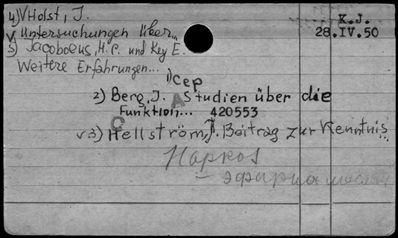 4) V Holst, J.
K.J.
V Untersuchungen über..
28.IV.50
5) Jacobaeus, H.C. und Key E.
Weitere Erfahrungen...
1) Cep
2) Berg, J. Studien über die
Funktion... 420553
v3) Hellström, J. Beitrag zur Kenntnis...
Наркоз
– эфирна